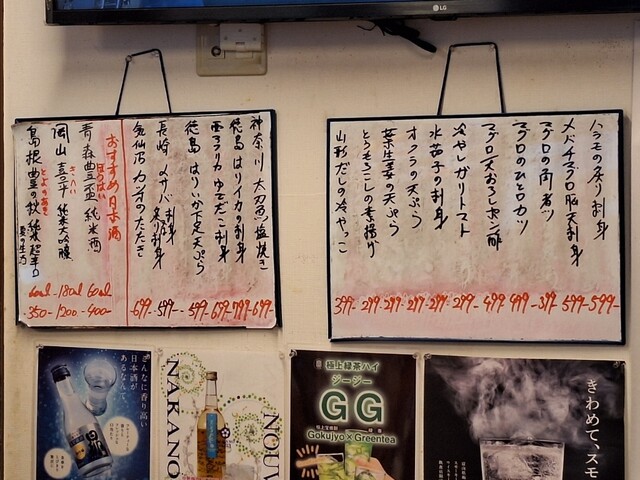 LG
ハラモの炙り刺身 599-
メバチマグロ脳天刺身 599-
マグロの角煮 399-
マグロのひとロカツ 499-
マグロ天おろしポン酢 499-
冷やしガリトマト 299-
水茄子の刺身 299-
オクラの天ぷら 299-
葉生姜の天ぷら 299-
とうもろこしの素揚げ 299-
山形だしの冷やっこ 399-
神奈川 太刀魚の塩焼き 699-
徳島 はりイカの刺身 799-
西アフリカ ゆでだこ刺身 699-
徳島 はりいか下足天ぷら 599-
長崎 〆サバ 刺身 炙り刺身 599-
気仙沼 カツオのたたき 699-
おすすめ日本酒
青森 豊盃 純米酒 60ml 400-
岡山 喜平 純米大吟醸 180ml 1200-
島根 豊の秋 純米超辛口 60ml 350-
こんなに香り高い
日本酒が
あるなんて。
NAKANO
NOUV
極上緑茶ハイ
ジージー
GG
Gokujyo×Greentea
きわめて、スモ